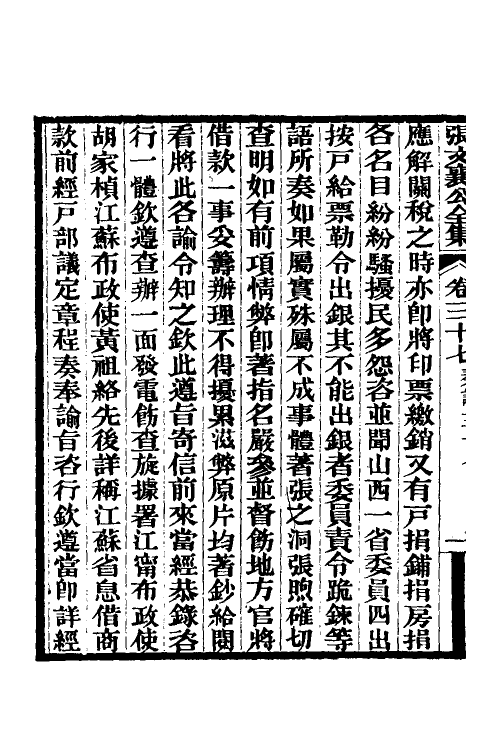 張文襄公全集 卷三十七 奏議三十七
應解關稅之時亦卽將印票繳銷又有戸捐鋪捐房捐
各名目紛紛騷擾民多怨咨並聞山西一省委員四出
按戸給票勒令出銀其不能出銀者委員責令跪鍊等
語所奏如果屬實殊屬不成事體著張之洞張煦確切
查明如有前項情弊卽著指名嚴參並督飭地方官將
借款一事妥籌辦理不得擾累滋弊原片均著鈔給閱
看將此各諭令知之欽此遵旨寄信前來當經恭錄咨
行一體欽遵查辦一面發電飭查旋據署江甯布政使
胡家楨江蘇布政使黃祖絡先後詳稱江蘇省息借商
款前經戸部議定章程奏奉諭旨咨行欽遵當卽詳經